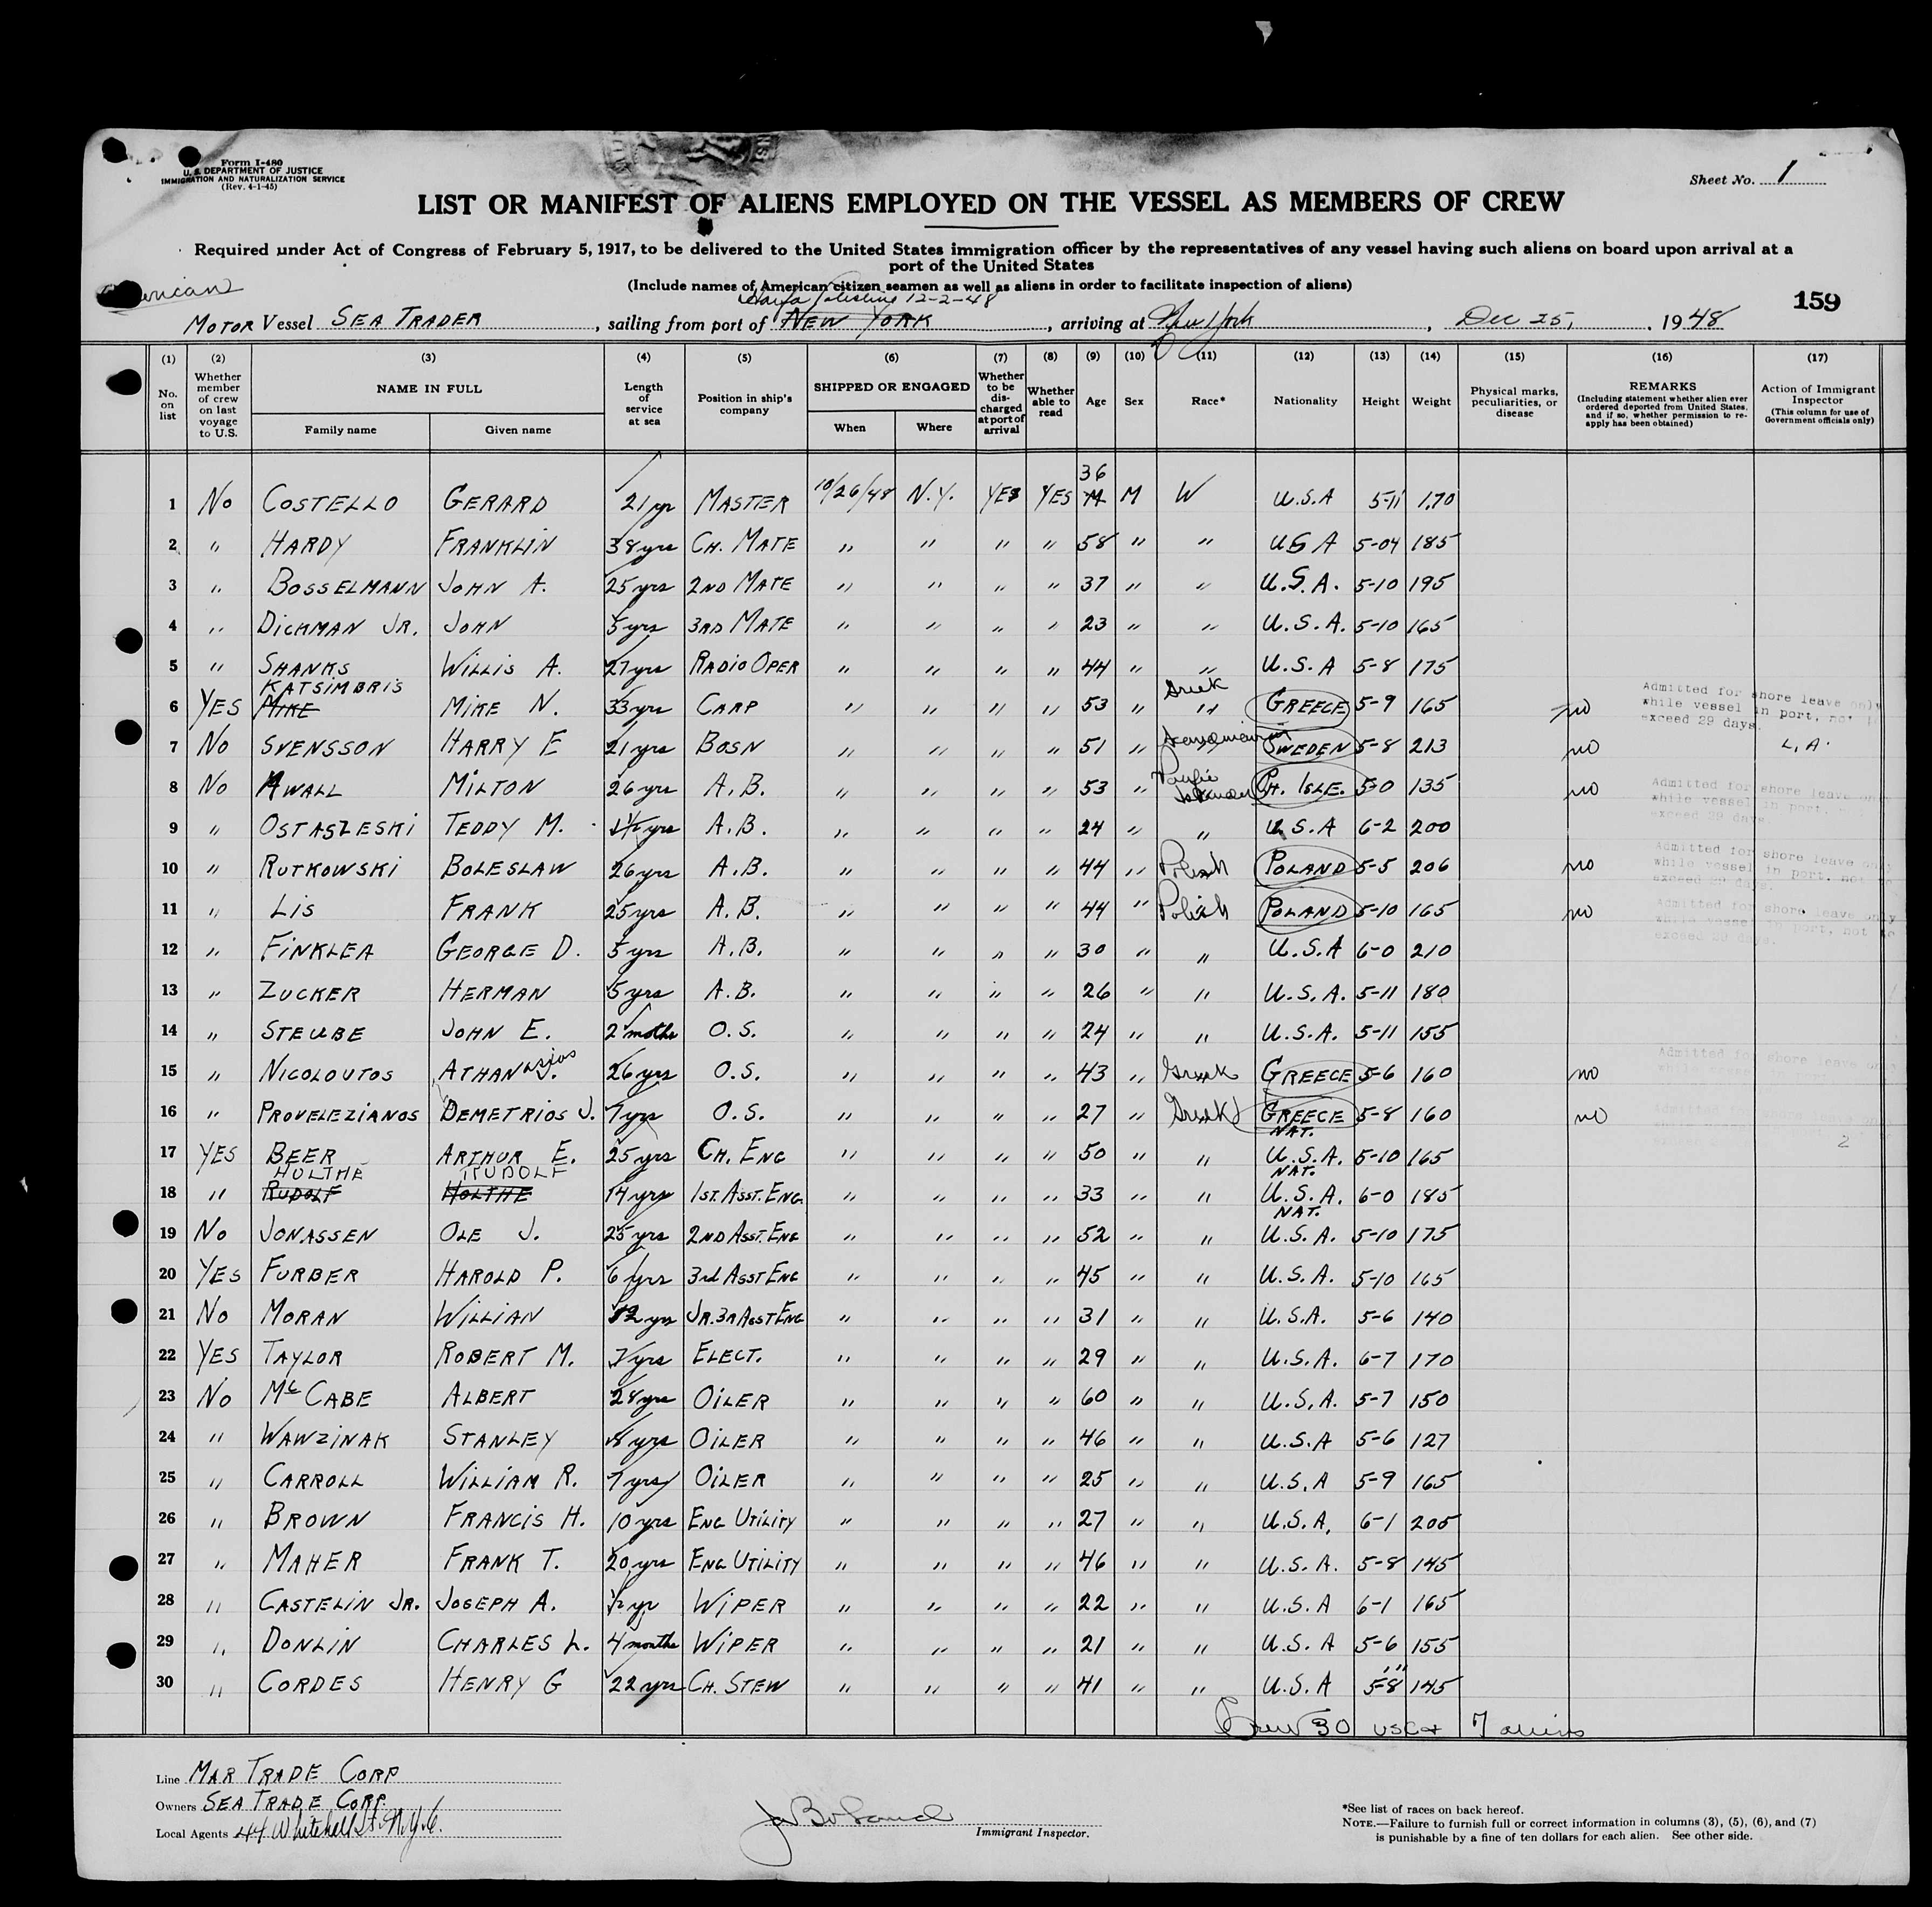 Form I-480
U. S. DEPARTMENT OF JUSTICE
IMMIGRATION AND NATURALIZATION SERVICE
(Rev. 4-1-45)
Sheet No. 1
LIST OR MANIFEST OF ALIENS EMPLOYED ON THE VESSEL AS MEMBERS OF CREW
Required under Act of Congress of February 5, 1917, to be delivered to the United States immigration officer by the representatives of any vessel having such aliens on board upon arrival at a
port of the United States
(Include names of American citizen seamen as well as aliens in order to facilitate inspection of aliens)
Haifa Palestine 12-2-48
159
MOTOR Vessel SEA TRADER, sailing from port of NEW YORK, arriving at New York, Dec 25, 1948
(1) (2) (3) (4) (5) (6) (7) (8) (9) (10) (11) (12) (13) (14) (15) (16) (17)
No. on list
Whether member of crew on last voyage to U.S.
NAME IN FULL
Family name
Given name
Length of service at sea
Position in ship's company
SHIPPED OR ENGAGED
When
Where
Whether to be discharged at port of arrival
Whether able to read
Age
Sex
Race*
Nationality
Height
Weight
Physical marks, peculiarities, or disease
REMARKS
(Including statement whether alien ever ordered deported from United States, and if so, whether permission to reapply has been obtained)
Action of Immigrant Inspector
(This column for use of Government officials only)
36
1 No COSTELLO GERARD 21 yr MASTER 10/26/48 N.Y. YES YES M W U.S.A 5-11 170
2 " HARDY FRANKLIN 38 yrs CH. MATE " " " " 58 " " USA 5-04 185
3 " BOSSELMANN JOHN A. 25 yrs 2ND MATE " " " " 37 " " U.S.A. 5-10 195
4 " DICKMAN JR. JOHN 5 yrs 3RD MATE " " " " 23 " " U.S.A. 5-10 165
5 " SHANKS WILLIS A. 27 yrs RADIO OPER " " " " 44 " " U.S.A 5-8 175
KATSIMBRIS Greek
6 YES MIKE MIKE N. 33 yrs CARP " " " " 53 " " GREECE 5-9 165 no
Admitted for shore leave only
while vessel in port, not to
exceed 29 days.
7 No SVENSSON HARRY E 21 yrs BOSN " " " " 51 " Scandinavian SWEDEN 5-8 213 no L.A.
8 No AWALL MILTON 26 yrs A.B. " " " " 53 " Pacific Islander PH. ISLE. 5-0 135 no
Admitted for shore leave only
while vessel in port,
exceed 29 days.
9 " OSTASZESKI TEDDY M. yrs A.B. " " " " 24 " " U.S.A 6-2 200
10 " RUTKOWSKI BOLESLAW 26 yrs A.B. " " " " 44 " Polish POLAND 5-5 206 no
Admitted for shore leave only
while vessel in port, not to
exceed 29 days.
11 " LIS FRANK 25 yrs A.B. " " " " 44 " Polish POLAND 5-10 165 no
Admitted for shore leave only
while vessel in port, not to
exceed 29 days.
12 " FINKLEA GEORGE D. 5 yrs A.B. " " " " 30 " " U.S.A 6-0 210
13 " ZUCKER HERMAN 5 yrs A.B. " " " " 26 " " U.S.A. 5-11 180
14 " STEUBE JOHN E. 2 moths O.S. " " " " 24 " " U.S.A. 5-11 155
15 " NICOLOUTOS ATHANasios J. 26 yrs O.S. " " " " 43 " Greek GREECE 5-6 160 no
Admitted for shore leave only
16 " PROVELEZIANOS DEMETRIOS J. 7 yrs O.S. " " " " 27 " Greek GREECE 5-8 160 no
NAT. 2
17 YES BEER ARTHUR E. 25 yrs CH. ENG " " " " 50 " " U.S.A. 5-10 165
HOLTHE RUDOLF NAT.
18 " RUDOLF HOLTHE 14 yrs 1ST. ASST. ENG. " " " " 33 " " U.S.A. 6-0 185
NAT.
19 No JONASSEN OLE J. 25 yrs 2ND ASST. ENG " " " " 52 " " U.S.A. 5-10 175
20 YES FURBER HAROLD P. 6 yrs 3rd ASST ENG " " " " 45 " " U.S.A. 5-10 165
21 No MORAN WILLIAN 12 yrs JR. 3R ASST ENG " " " " 31 " " U.S.A. 5-6 140
22 YES TAYLOR ROBERT M. 7 yrs ELECT. " " " " 29 " " U.S.A. 6-7 170
23 No McCABE ALBERT 28 yrs OILER " " " " 60 " " U.S.A. 5-7 150
24 " WAWZINAK STANLEY 8 yrs OILER " " " " 46 " " U.S.A 5-6 127
25 " CARROLL WILLIAM R. 7 yrs OILER " " " " 25 " " U.S.A 5-9 165
26 " BROWN FRANCIS H. 10 yrs ENG UTILITY " " " " 27 " " U.S.A, 6-1 205
27 " MAHER FRANK T. 20 yrs ENG UTILITY " " " " 46 " " U.S.A. 5-8 145
28 " CASTELIN JR. JOSEPH A. ½ yr WIPER " " " " 22 " " U.S.A 6-1 165
29 " DONLIN CHARLES L. 4 months WIPER " " " " 21 " " U.S.A 5-6 155
30 " CORDES HENRY G 22 yrs CH. STEW " " " " 41 " " U.S.A 5-8 145
Crew 30 USC + 7 aliens
Line MAR TRADE CORP
Owners SEA TRADE CORP.
Local Agents 44 Whitehall St. N.Y.C.
Immigrant Inspector.
*See list of races on back hereof.
NOTE.—Failure to furnish full or correct information in columns (3), (5), (6), and (7)
is punishable by a fine of ten dollars for each alien. See other side.